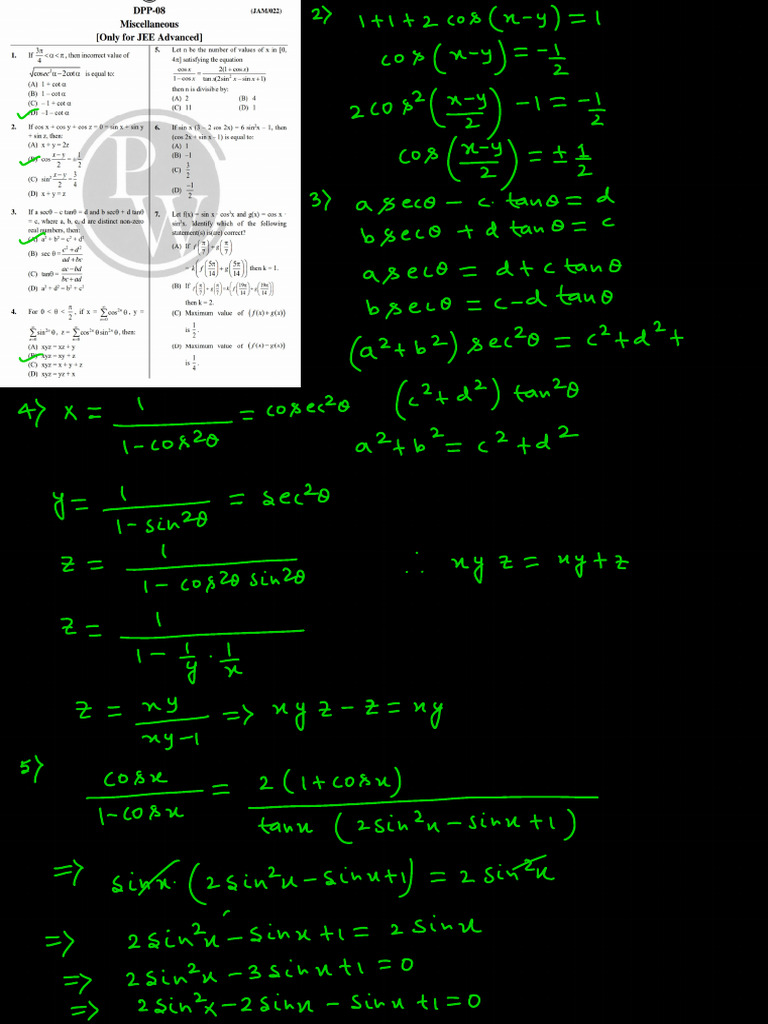 DPP-08 (JAM/022)
Miscellaneous
[Only for JEE Advanced]
1. If 3π/4 < α < π, then incorrect value of
√(cosec²α − 2cot α) is equal to:
(A) 1 + cot α
(B) 1 – cot α
(C) – 1 + cot α
(D) –1 – cot α
2. If cos x + cos y + cos z = 0 = sin x + sin y
+ sin z, then:
(A) x + y = 2z
(B) cos (x−y)/2 = ± 1/2
(C) sin² (x−y)/2 = 3/4
(D) x + y = z
3. If a secθ – c tanθ = d and b secθ + d tanθ
= c, where a, b, c, d are distinct non-zero
real numbers, then:
(A) a² + b² = c² + d²
(B) sec θ = (c² + d²)/(ad + bc)
(C) tanθ = (ac − bd)/(bc + ad)
(D) a² + d² = b² + c²
4. For 0 < θ < π/2, if x = ∑ cos²ⁿ θ, y =
∑ sin²ⁿ θ, z = ∑ cos²ⁿ θ sin²ⁿ θ, then:
(A) xyz = xz + y
(B) xyz = xy + z
(C) xyz = x + y + z
(D) xyz = yz + x
5. Let n be the number of values of x in [0,
4π] satisfying the equation
cos x/(1 − cos x) = 2(1 + cos x)/(tan x(2sin² x − sin x + 1))
then n is divisible by:
(A) 2 (B) 4
(C) 11 (D) 1
6. If sin x (3 – 2 cos 2x) = 6 sin²x – 1, then
(cos 2x + sin x - 1) is equal to:
(A) 1
(B) –1
(C) 3/2
(D) −1/2
7. Let f(x) = sin x · cos³x and g(x) = cos x ·
sin³x. Identify which of the following
statement(s) is(are) correct?
(A) If f(π/7) + g(π/7)
= k(f(5π/14) + g(5π/14)) then k = 1.
(B) If f(π/7) + g(π/7) = k(f(19π/14) + g(19π/14))
then k = 2.
(C) Maximum value of (f(x) + g(x))
is 1/2.
(D) Maximum value of (f(x) − g(x))
is 1/4.
2) 1+1+2 cos(x-y) = 1
cos(x-y) = -1/2
2 cos²((x-y)/2) - 1 = -1/2
cos((x-y)/2) = ± 1/2
3) a secθ - c · tanθ = d
b secθ + d tanθ = c
a secθ = d + c tanθ
b secθ = c - d tanθ
(a²+b²) sec²θ = c²+d²+
(c²+d²) tan²θ
a²+b² = c²+d²
4) x = 1/(1-cos²θ) = cosec²θ
y = 1/(1-sin²θ) = sec²θ
z = 1/(1-cos²θ sin²θ)
z = 1/(1 - 1/y · 1/x)
z = xy/(xy-1) => xyz - z = xy
∴ xyz = xy+z
5) cosx/(1-cosx) = 2(1+cosx)/(tanx (2sin²x - sinx+1))
=> sinx · (2sin²x - sinx+1) = 2 sin²x
=> 2sin²x - sinx+1 = 2 sinx
=> 2sin²x - 3sinx+1 = 0
=> 2sin²x - 2sinx - sinx +1 = 0